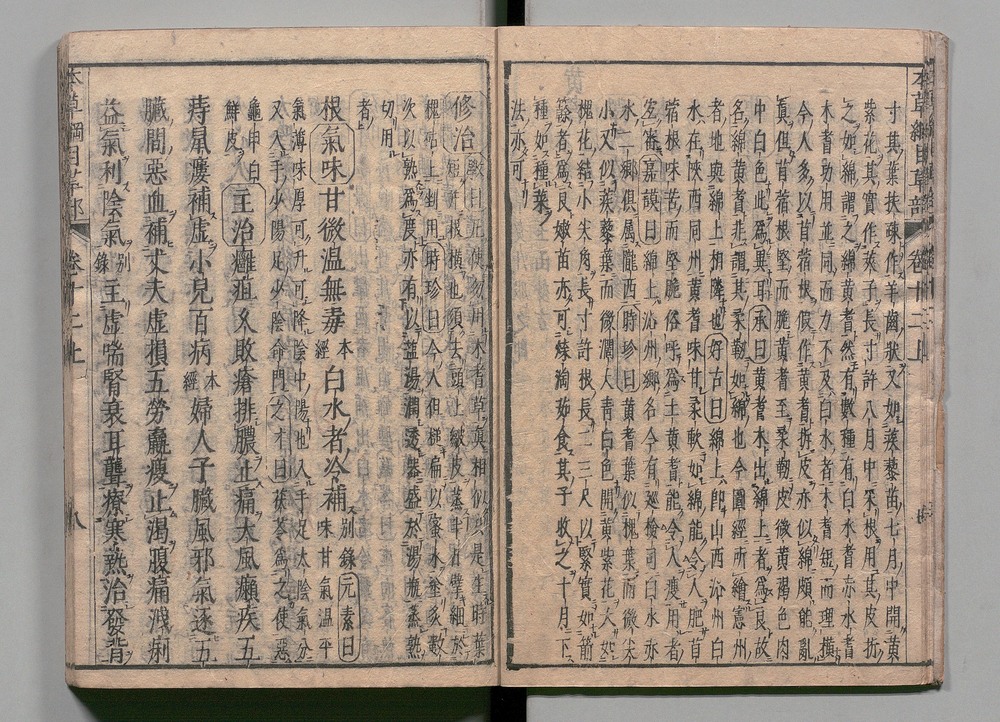 本草綱目草部 卷十二上
寸其葉扶疎作羊齒狀又如蒺藜苗七月中開黃
紫花其實作莢子長寸許八月中采根用其皮折
之如綿謂之綿黃耆然有數種有白水耆赤水耆
木耆功用並同而力不及白水者木耆短而理橫
今人多以苜蓿根假作黃耆折皮亦似綿頗能亂
真但苜蓿根堅而脆黃耆至柔韌皮微黃褐色肉
中白色此為異耳承曰黃耆本出綿上者為良故
名綿黃耆非謂其柔韌如綿也今圖經所繪憲州
者地與綿上相鄰也好古曰綿上即山西沁州白
水在陝西同州黃耆味甘柔軟如綿能令人肥苜
蓿根味苦而堅脆俗呼為土黃耆能令人瘦用者
宜審嘉謨曰綿上沁州鄉名今有巡檢司白水亦
水一鄉俱屬隴西時珍曰黃耆葉似槐葉而微尖
小又似蒺藜葉而微濶大青白色開黃紫花大如
槐花結小尖角長寸許根長二三尺以緊實如箭
簳者為良嫩苗亦可煠淘茹食其子收之十月下
種如種菜法亦可
修治 斅曰凡使勿用木耆草真相似只是生時葉
短并根橫也須去頭上皺皮蒸半日擘細於
槐砧上剉用時珍曰今人但槌扁以蜜水塗炙數
次以熟為度亦有以鹽湯潤透器盛於湯瓶蒸熟
切用者
根氣味甘微溫無毒本經白水者冷補別錄元素曰
味甘氣溫平
氣薄味厚可升可降陰中陽也入手足太陰氣分
又入手少陽足少陰命門之才曰茯苓為之使惡
龜甲白鮮皮主治癰疽久敗瘡排膿止痛大風癩疾五
痔鼠瘻補虛小兒百病本經婦人子臟風邪氣逐五
臟間惡血補丈夫虛損五勞羸瘦止渴腹痛洩痢
益氣利陰氣別錄主虛喘腎衰耳聾療寒熱治發背
本草綱目草部 卷十二上 八